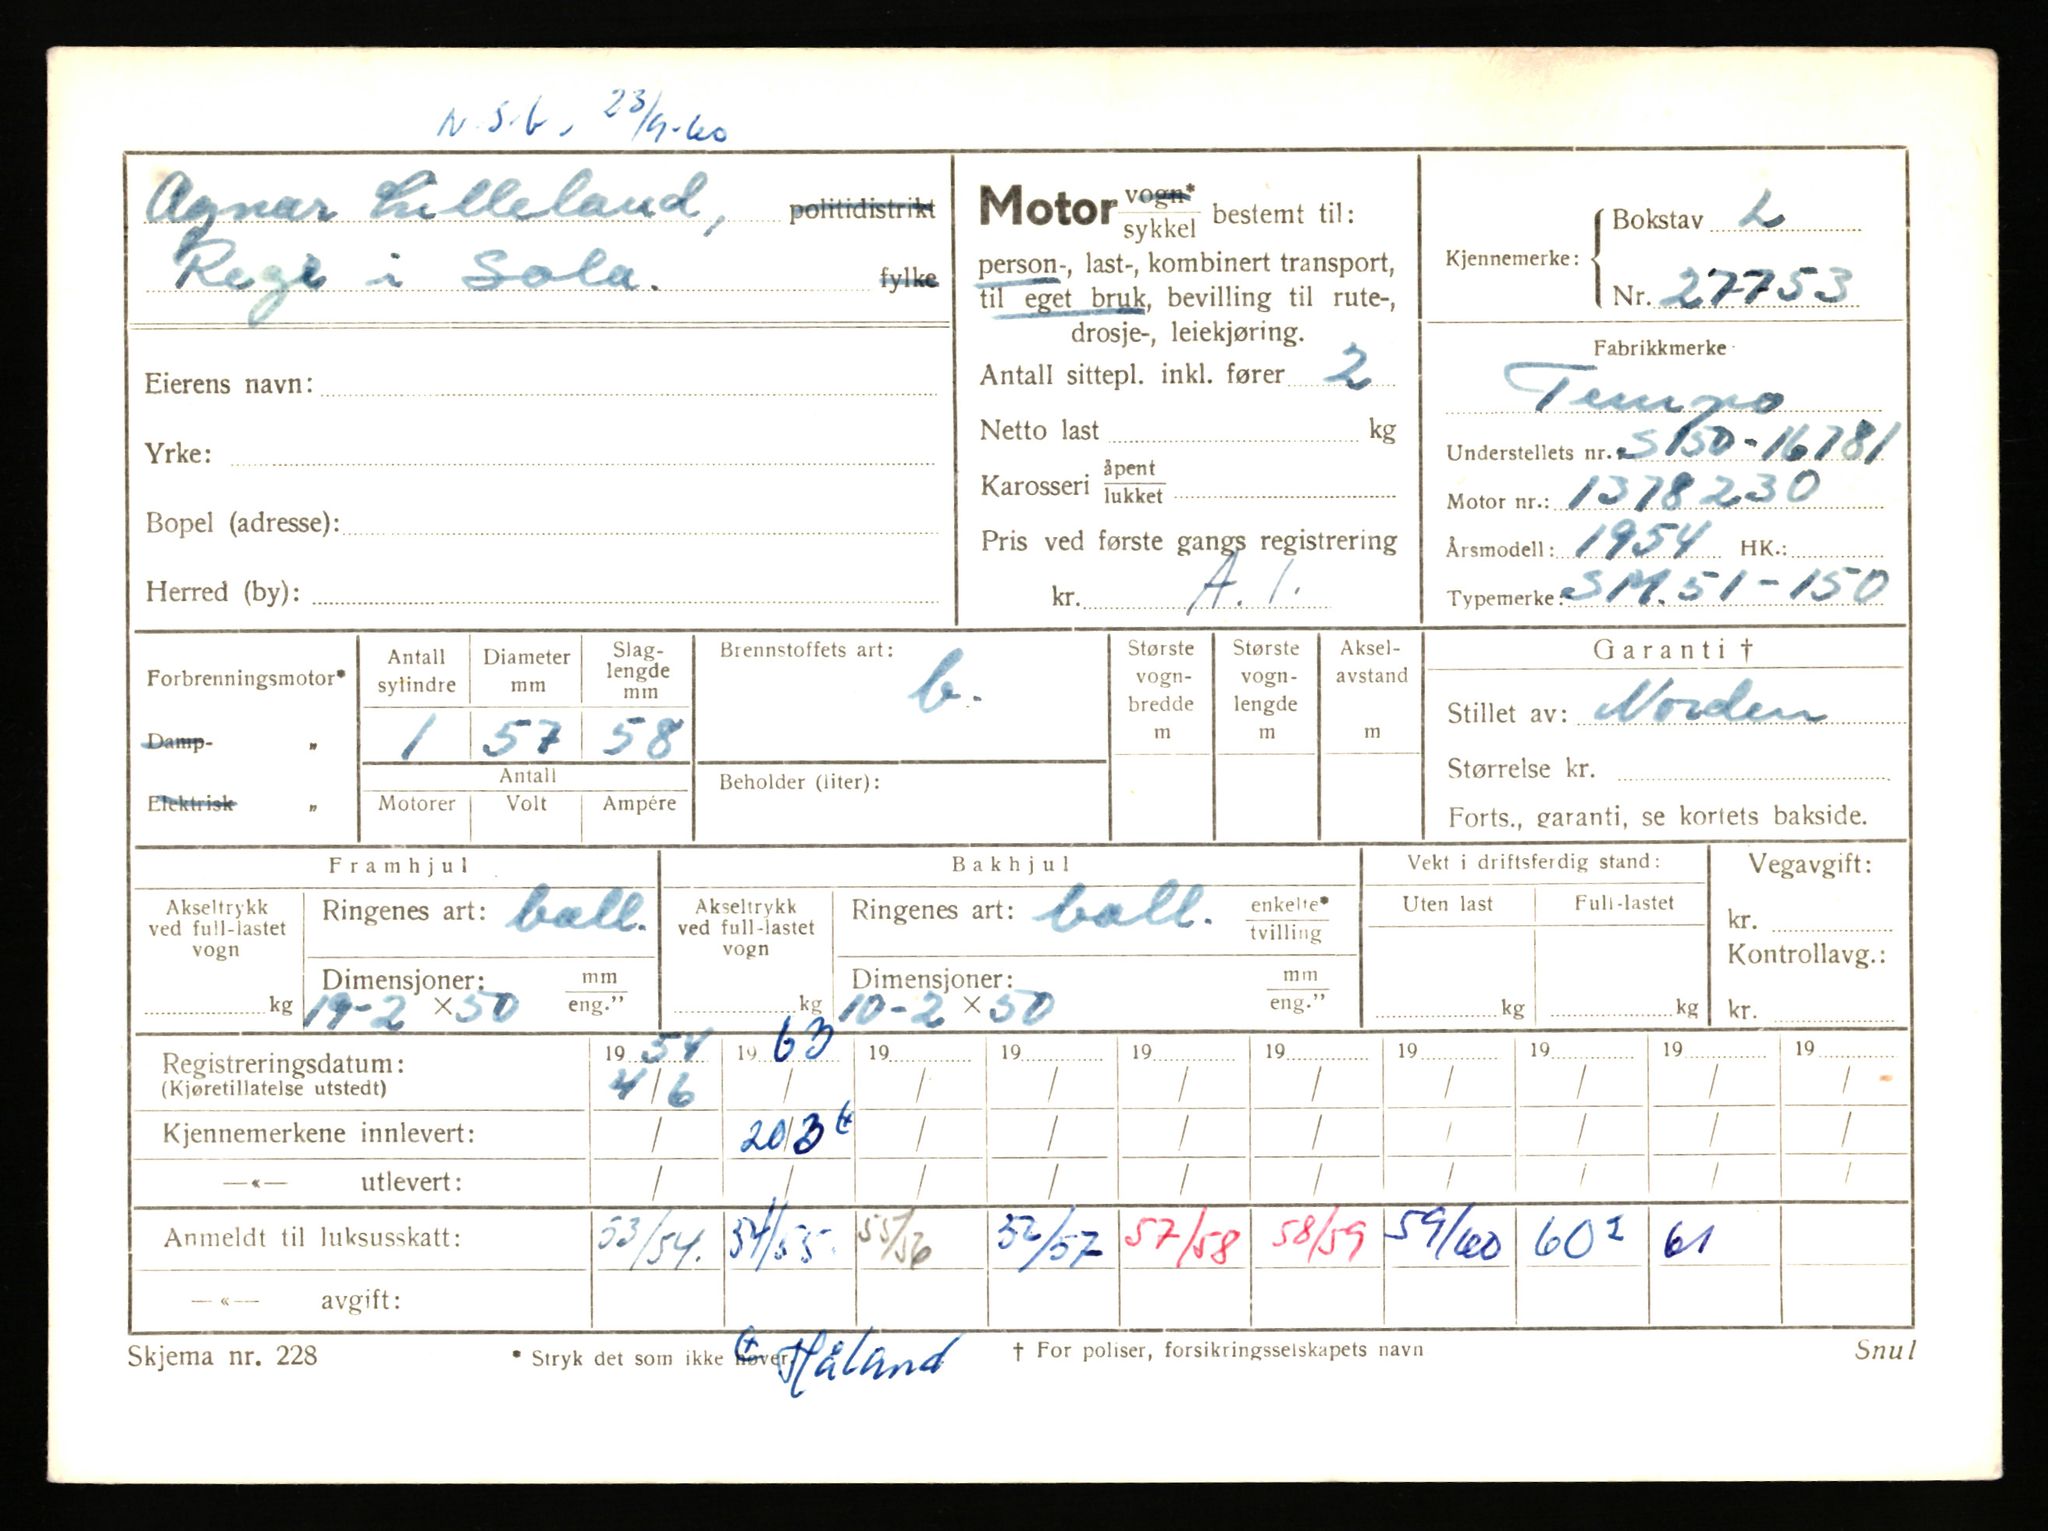 N.S.b. 23/9-60
Agnar Lilleland, politidistrikt
Rege i Sola. fylke
Eierens navn:
Yrke:
Bopel (adresse):
Herred (by):
Motor vogn* / sykkel bestemt til:
person-, last-, kombinert transport,
til eget bruk, bevilling til rute-,
drosje-, leiekjøring.
Antall sittepl. inkl. fører 2
Netto last kg
Karosseri åpent / lukket
Pris ved første gangs registrering
kr. A. 1.
Kjennemerke: Bokstav L
Nr. 27753
Fabrikkmerke
Tempo
Understellets nr. S150-16781
Motor nr.: 1378230
Årsmodell: 1954 HK.:
Typemerke: SM.51-150
Forbrenningsmotor*
Damp- „
Elektrisk „
Antall sylindre Diameter mm Slaglengde mm
1 57 58
Antall
Motorer Volt Ampére
Brennstoffets art:
b.
Beholder (liter):
Største vognbredde m
Største vognlengde m
Akselavstand m
Garanti †
Stillet av: Norden
Størrelse kr.
Forts., garanti, se kortets bakside.
Framhjul
Akseltrykk ved full-lastet vogn
kg
Ringenes art: ball.
Dimensjoner: mm / eng.”
19-2 × 50
Bakhjul
Akseltrykk ved full-lastet vogn
kg
Ringenes art: ball. enkelte* / tvilling
Dimensjoner: mm / eng.”
10-2 × 50
Vekt i driftsferdig stand:
Uten last Full-lastet
kg kg
Vegavgift:
kr.
Kontrollavg.:
kr.
Registreringsdatum: 19 54 19 63 19 19 19 19 19 19 19 19
(Kjøretillatelse utstedt) 4/6 / / / / / / / / /
Kjennemerkene innlevert: / 20/3 / / / / / / / /
—«— utlevert: / / / / / / / / / /
Anmeldt til luksusskatt: 53/54. 54/55. 55/56 52/57 57/58 58/59 59/60 60² 61
—«— avgift:
Skjema nr. 228 * Stryk det som ikke høver. Håland † For poliser, forsikringsselskapets navn Snul